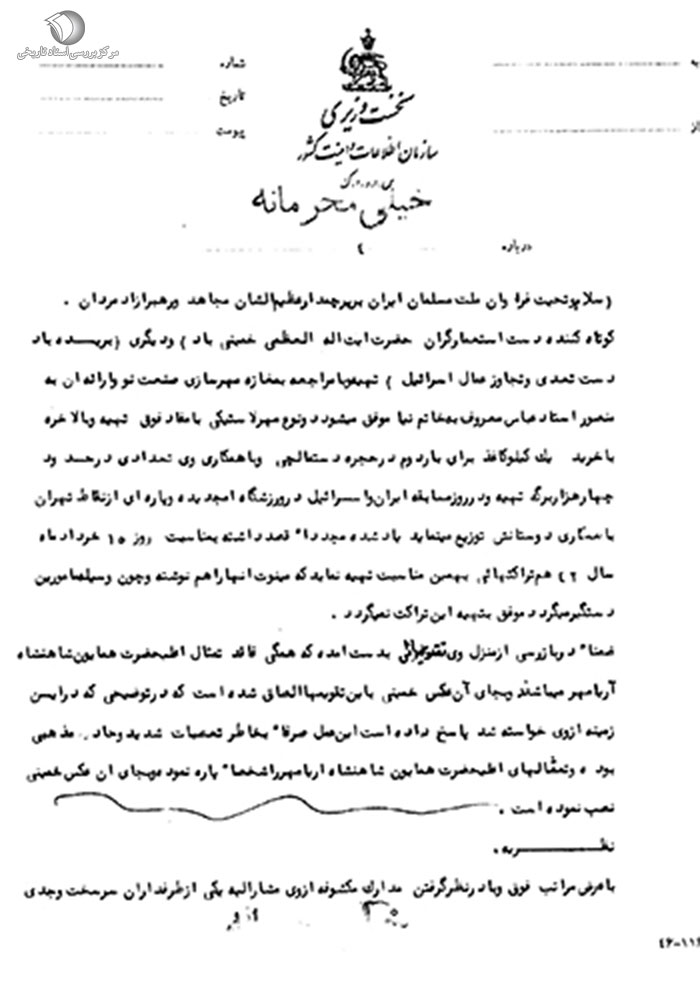 مرکز بررسی اسناد تاریخی
به
از
نخست وزیری
سازمان اطلاعات و امنیت کشور
شماره
تاریخ
پیوست
خیلی محرمانه
درباره ٤
(سلام وتحیت فراوان ملت مسلمان ایران برپرچمدار عظیم الشان مجاهد ورهبر ازاد مردان .
کوتاه کننده دست استعمارگران حضرت ایت اله العظمی خمینی باد ) ودیگری (بریده باد
دست تعدی وتجاوز عمال اسرائیل ) تهیه وبا مراجعه بمغازه مهرسازی صنعت نو وارائه ان به
منصور استاد عباس معروف به خاتم نیا موفق میشود دو نوع مهر لاستیکی با مفاد فوق تهیه وبالاخره
با خرید یک کیلو کاغذ برای بار دوم در حجره دستمالچی وبا همکاری وی تعدادی در حدود
چهار هزار برگ تهیه ودر روز مسابقه ایران واسرائیل در ورزشگاه امجدیه وپاره ای از نقاط تهران
با همکاری دوستانش توزیع مینماید یاد شده مجددا" قصد داشته بمناسبت روز ١٥ خرداد ماه
سال ٤٢ هم تراکتهائی بهمین مناسبت تهیه نماید که مینوت انها را هم نوشته وچون وسیله مامورین
دستگیر میگردد موفق بتهیه این تراکت نمیگردد .
ضمنا" در بازرسی از منزل وی بدست امده که همگی فاقد تمثال اعلیحضرت همایون شاهنشاه
آریامهر میباشند وبجای آن عکس خمینی باین تقویمها الحاق شده است که در توضیحی که در این
زمینه ازوی خواسته شد پاسخ داده است این عمل صرفا" بخاطر تعصبات شدید وحاد مذهبی
بوده وتمثالهای اعلیحضرت همایون شاهنشاه اریامهر را شخصا" پاره نموده وبجای ان عکس خمینی
نصب نموده است .
نظریه .
با عرض مراتب فوق وبا در نظر گرفتن مدارک مکشوفه ازوی مشارالیه یکی از طرفداران سرسخت وجدی